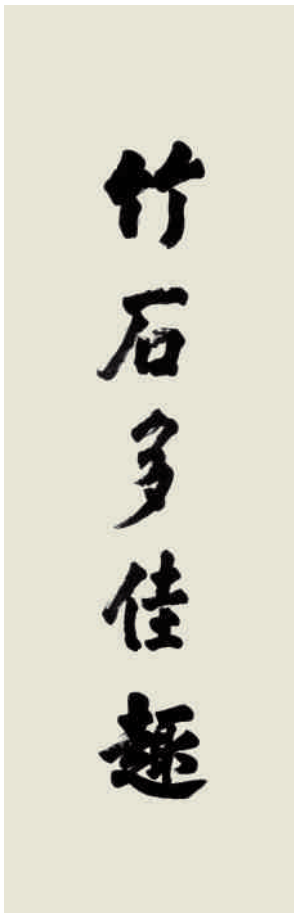 竹石多佳趣